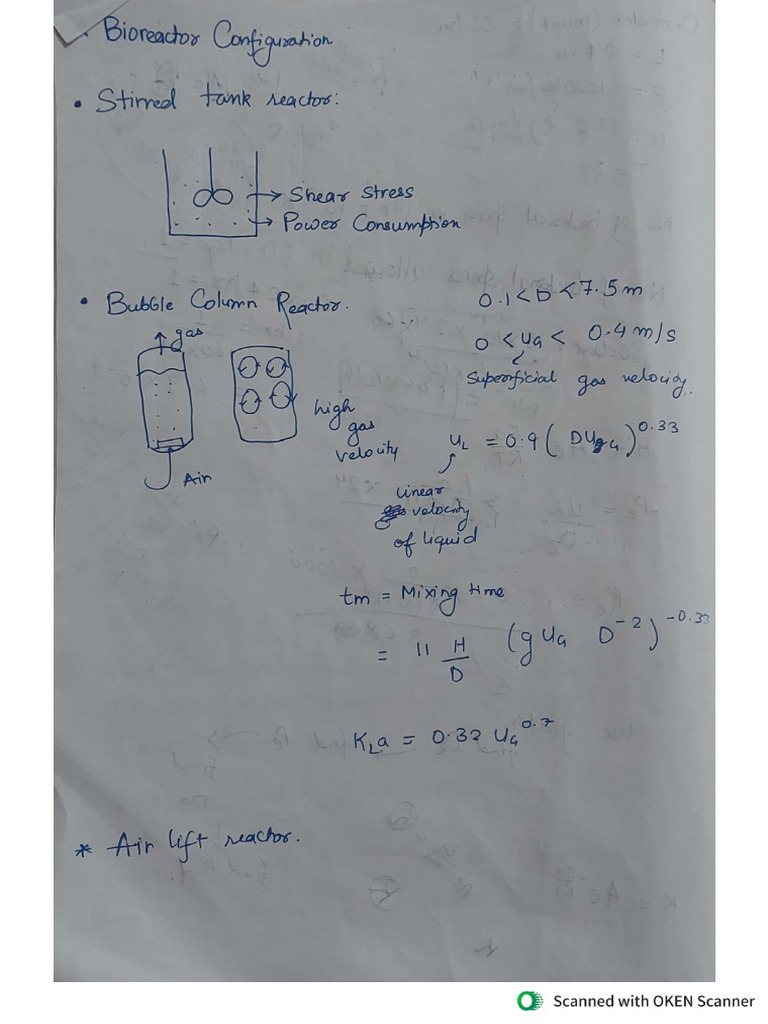 • Bioreactor Configuration
• Stirred tank reactor:
→ Shear stress
→ Power Consumption
• Bubble Column Reactor.
0.1 < D < 7.5 m
gas
0 < uG < 0.4 m/s
Superficial gas velocity.
high
gas
velocity
Air
uL = 0.9 ( D uG )^0.33
Linear
velocity
of liquid
tm = Mixing time
= 11 H/D (g uG D^-2)^-0.33
KLa = 0.32 uG^0.7
* Air lift reactor.
Scanned with OKEN Scanner